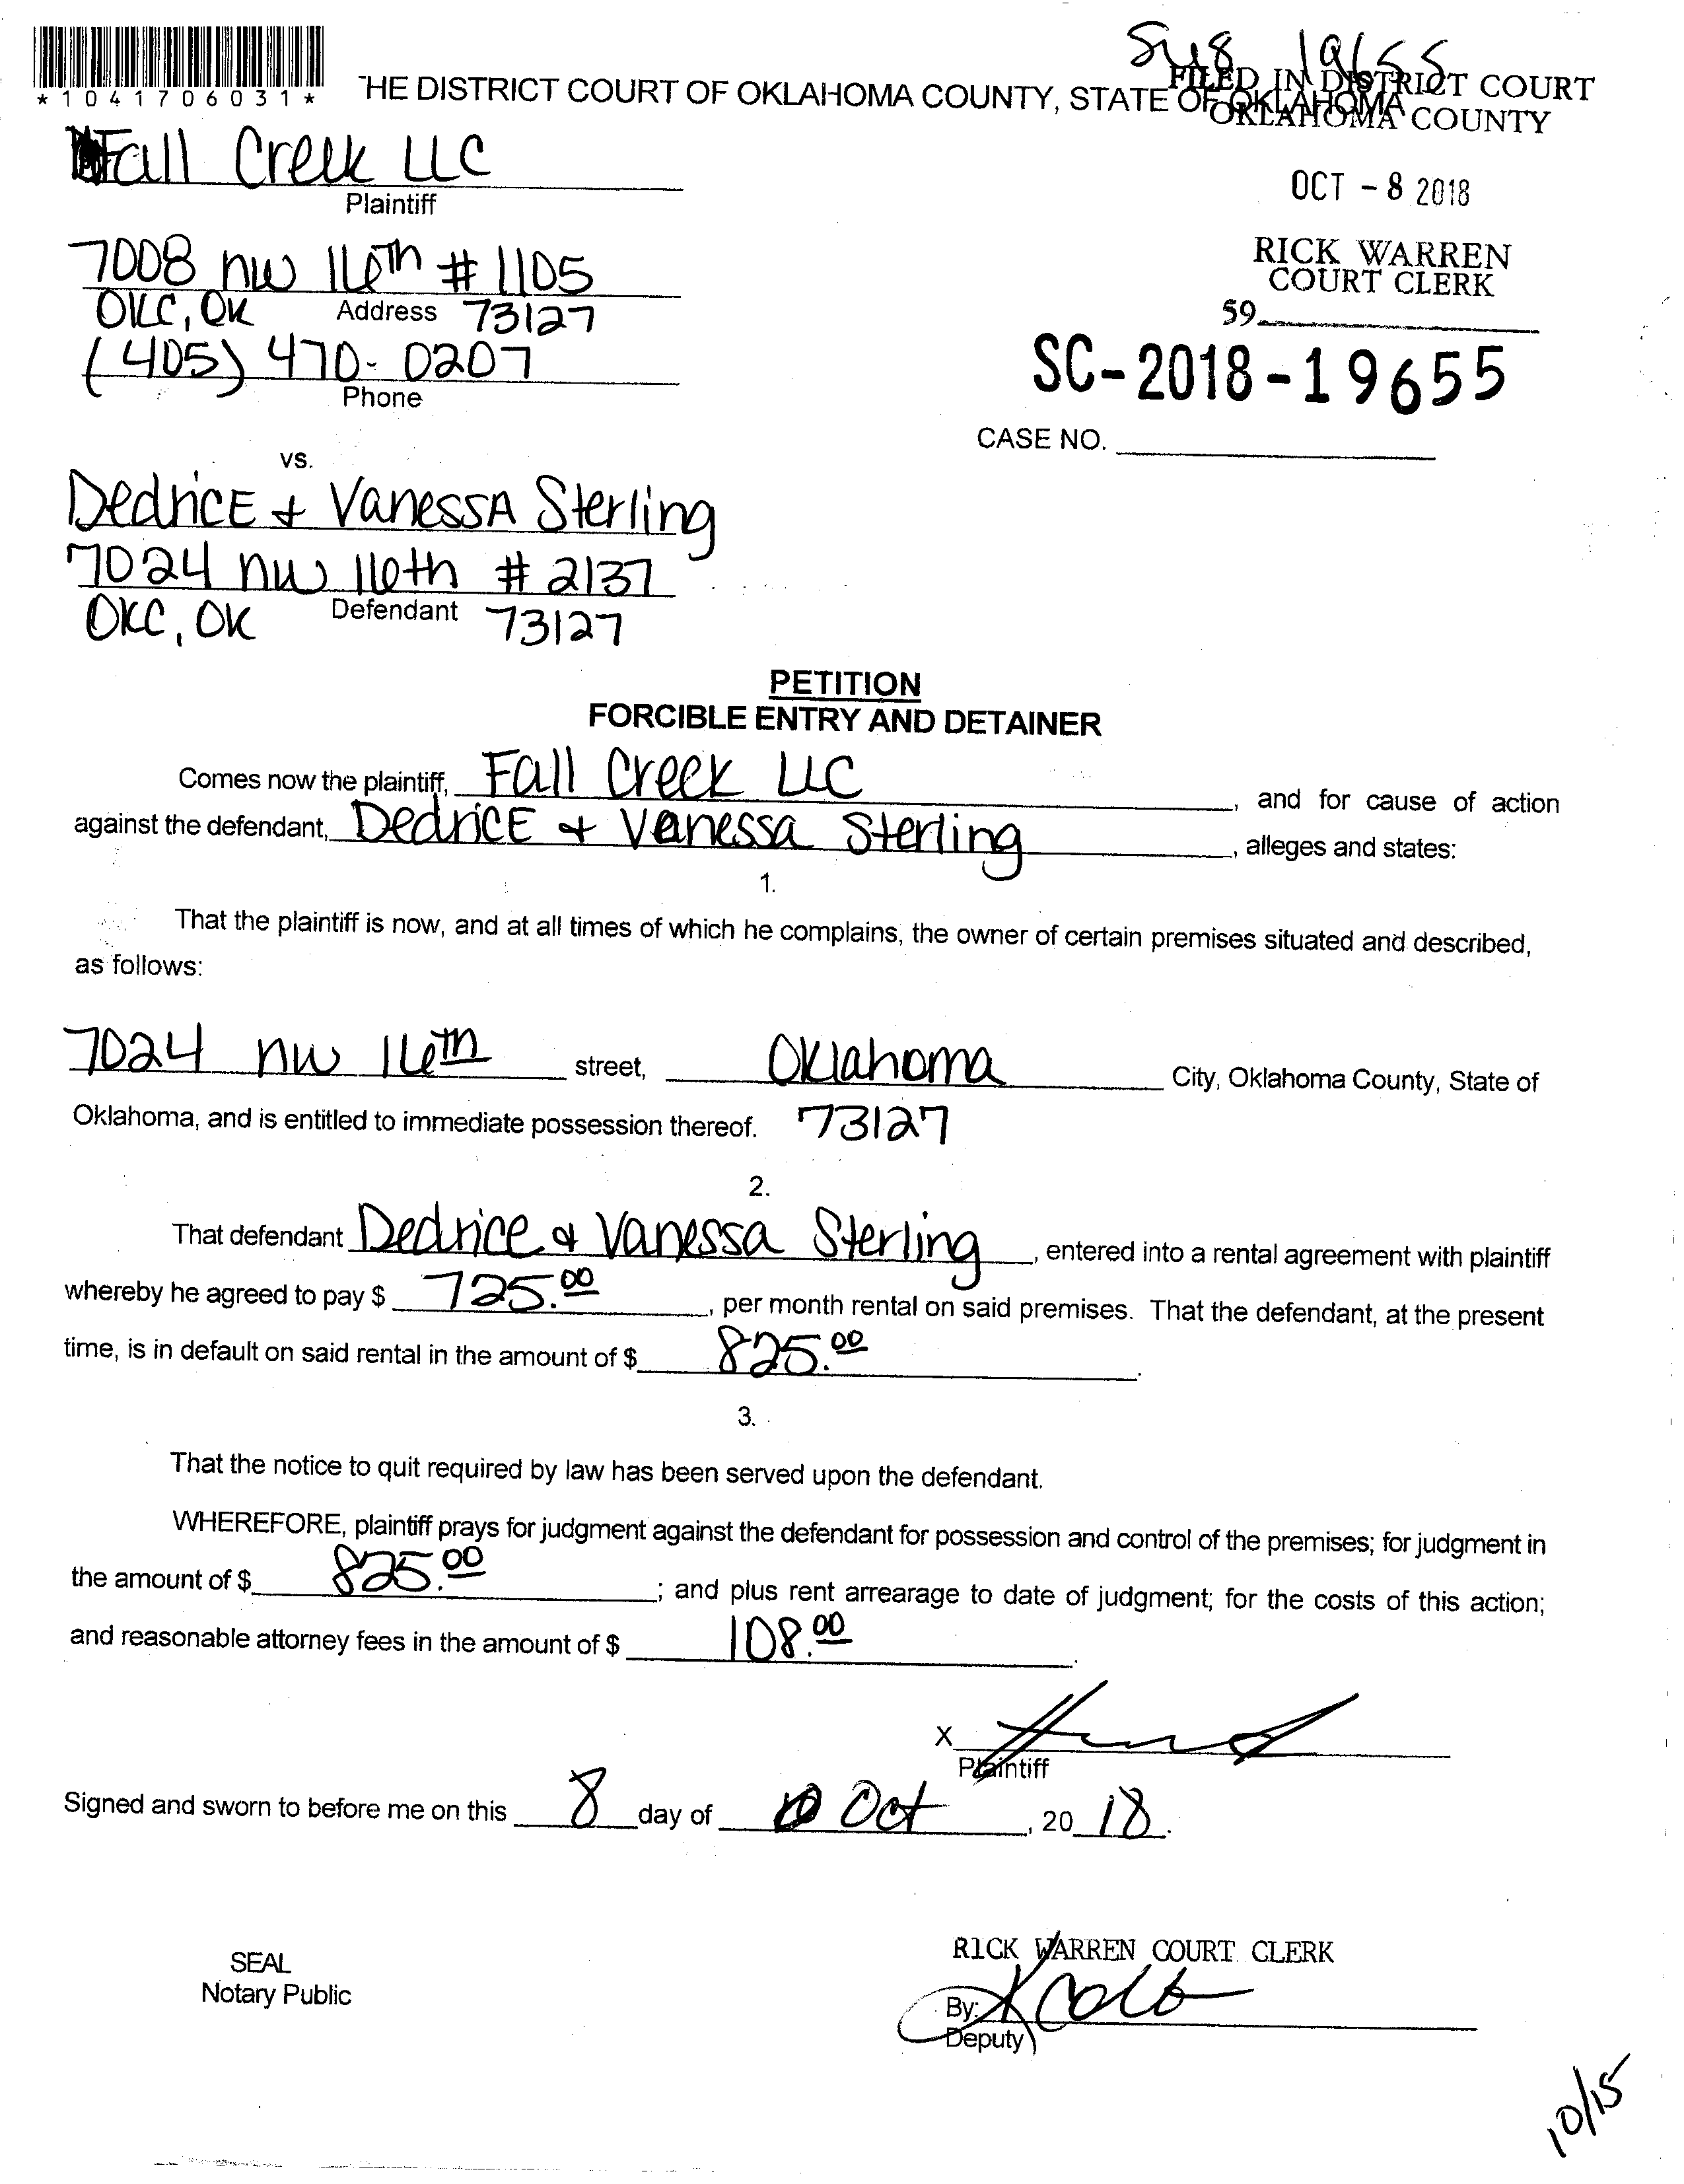 Sy8 19655
*1041706031*
HE DISTRICT COURT OF OKLAHOMA COUNTY, STATE OF OKLAHOMA
FILED IN DISTRICT COURT
OKLAHOMA COUNTY
Fall Creek LLC
Plaintiff
OCT - 8 2018
7008 nw 16th # 1105
RICK WARREN
COURT CLERK
OKC, OK Address 73127
59
(405) 470-0207
Phone
SC-2018-19655
CASE NO.
vs.
DedricE + VanessA Sterling
7024 nw 16th # 2137
OKC, OK Defendant 73127
PETITION
FORCIBLE ENTRY AND DETAINER
Comes now the plaintiff, Fall Creek LLC, and for cause of action
against the defendant, DedricE + Vanessa Sterling, alleges and states:
1.
That the plaintiff is now, and at all times of which he complains, the owner of certain premises situated and described,
as follows:
7024 nw 16th street, Oklahoma City, Oklahoma County, State of
Oklahoma, and is entitled to immediate possession thereof. 73127
2.
That defendant Dedrice & Vanessa Sterling, entered into a rental agreement with plaintiff
whereby he agreed to pay $ 725.00, per month rental on said premises. That the defendant, at the present
time, is in default on said rental in the amount of $ 825.00.
3.
That the notice to quit required by law has been served upon the defendant.
WHEREFORE, plaintiff prays for judgment against the defendant for possession and control of the premises; for judgment in
the amount of $ 825.00; and plus rent arrearage to date of judgment; for the costs of this action;
and reasonable attorney fees in the amount of $ 108.00.
X
Plaintiff
Signed and sworn to before me on this 8 day of Oct, 20 18.
SEAL
Notary Public
RICK WARREN COURT CLERK
By:
Deputy
10/15